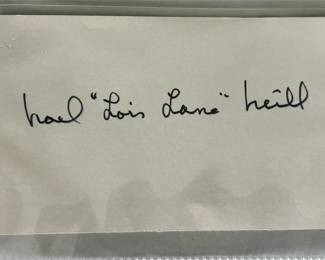 Noel "Lois Lane" Neill